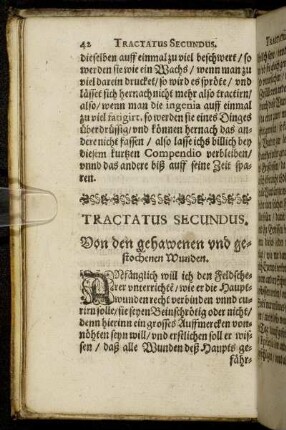 42 TRACTATUS SECUNDUS.
dieselben auff einmal zu viel beschwert / so
werden sie wie ein Wachs / wenn man zu
viel darein drucket / so wird es spröte / vnd
lässet sich hernach nicht mehr also tractirn /
also / wenn man die ingenia auff einmal
zu viel fatigirt, so werden sie eines Dinges
überdrüssig / vnd können hernach das an-
dere nicht fassen / also lasse ichs billich bey
diesem kurtzen Compendio verbleiben /
vnnd das andere biß auff seine Zeit spa-
ren.
TRACTATUS SECUNDUS.
Von den gehawenen vnd ge-
stochenen Wunden.
ANfänglich will ich den Feldsche-
rer vnterrichtẽ / wie er die Haupt-
wunden recht verbinden vnnd cu-
rirn solle / sie seyen Beinschrötig oder nicht /
denn hierinn ein grosses Auffmercken von-
nöhten seyn will / vnd erstlichen soll er wis-
sen / daß alle Wunden deß Haupts ge-
fähr-